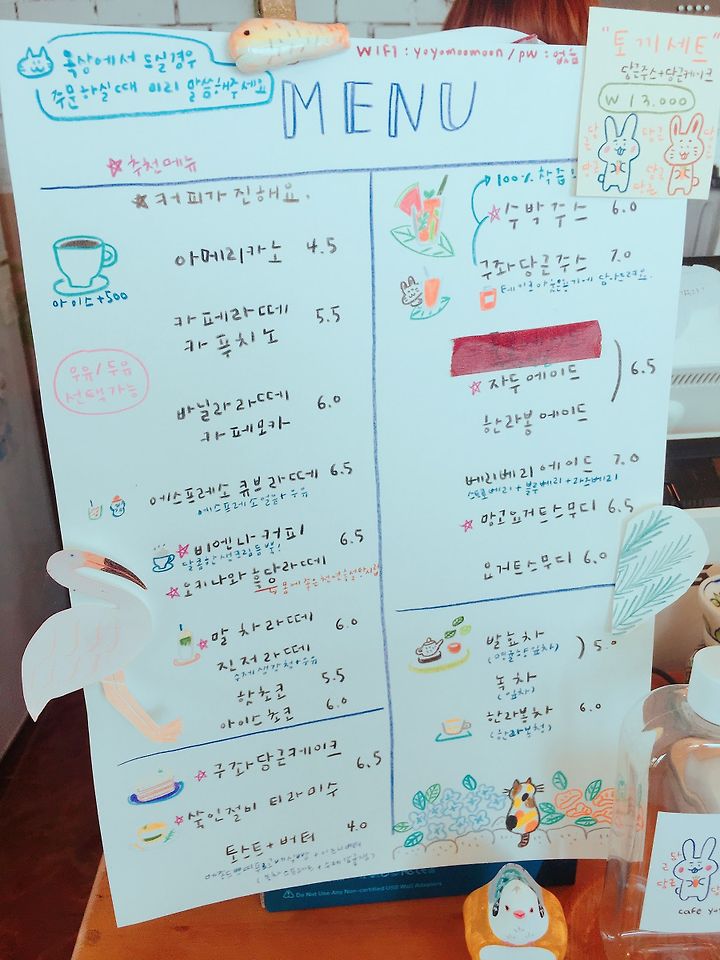 옥상에서 드실경우
주문하실때 미리 말씀해주세요
WIFI : yoyomoomoon / PW : 없음
MENU
☆추천메뉴
★커피가 진해요.
아메리카노 4.5
아이스+500
카페라떼 5.5
카푸치노
우유/두유
선택가능
바닐라라떼 6.0
카페모카
에스프레소 큐브라떼 6.5
에스프레소얼음+우유
☆비엔나커피 6.5
달콤한 생크림듬뿍!
☆오키나와 흑당라떼
☆말차라떼 6.0
진저라떼
수제생강청+우유
핫초코 5.5
아이스초코 6.0
☆구좌당근케이크 6.5
☆쑥인절미 티라미수
토스트+버터 4.0
100% 착즙
☆수박주스 6.0
구좌당근주스 7.0
☆자두에이드 6.5
한라봉에이드
베리베리에이드 7.0
스트로베리+블루베리+라즈베리
☆망고요거트스무디 6.5
요거트스무디 6.0
발효차 5.0
녹차
(잎차)
한라봉차 6.0
(한라봉청)
"토끼세트"
당근주스+당근케이크
₩13.000
당근
당근
당근
Do Not Use Any Non-certified USB Wall Adapters
당근
당근
cafe yo